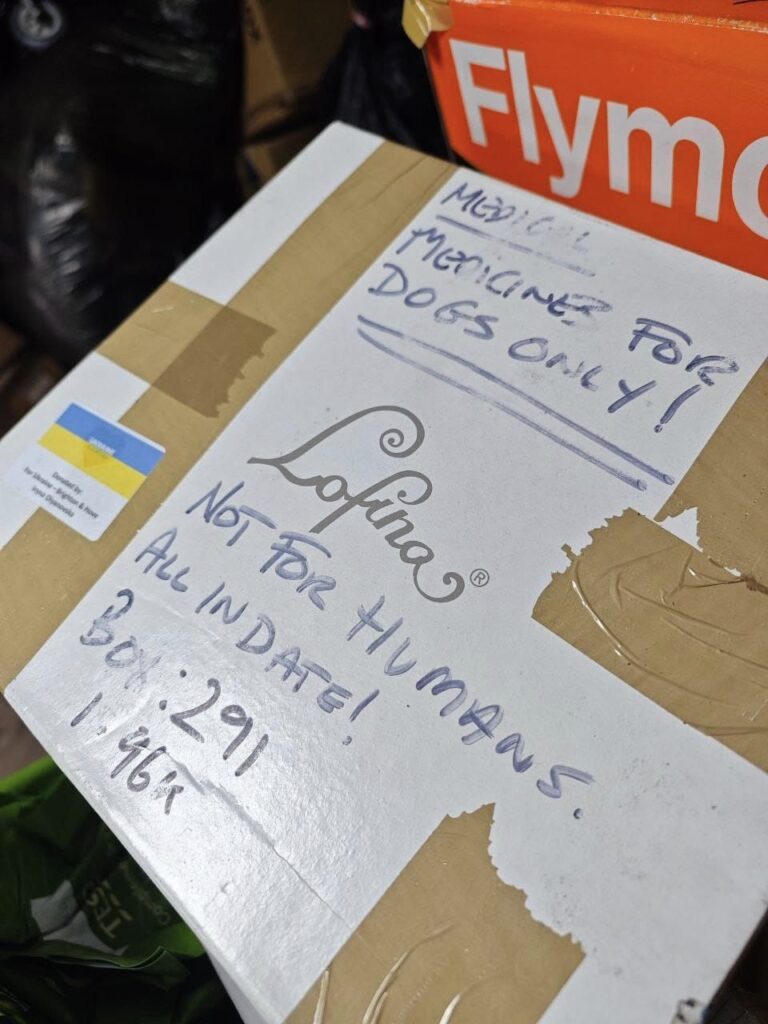 Flymo
MEDICAL
MEDICINES FOR
DOGS ONLY!
UKRAINE
Donated by:
For Ukraine - Brighton & Hove
Lofina®
NOT FOR HUMANS.
ALL IN DATE!
Box: 291
1.46k
TES